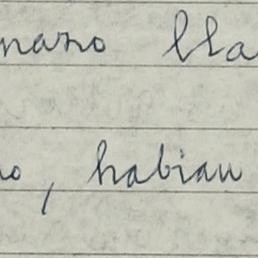 mano lla
o, habian